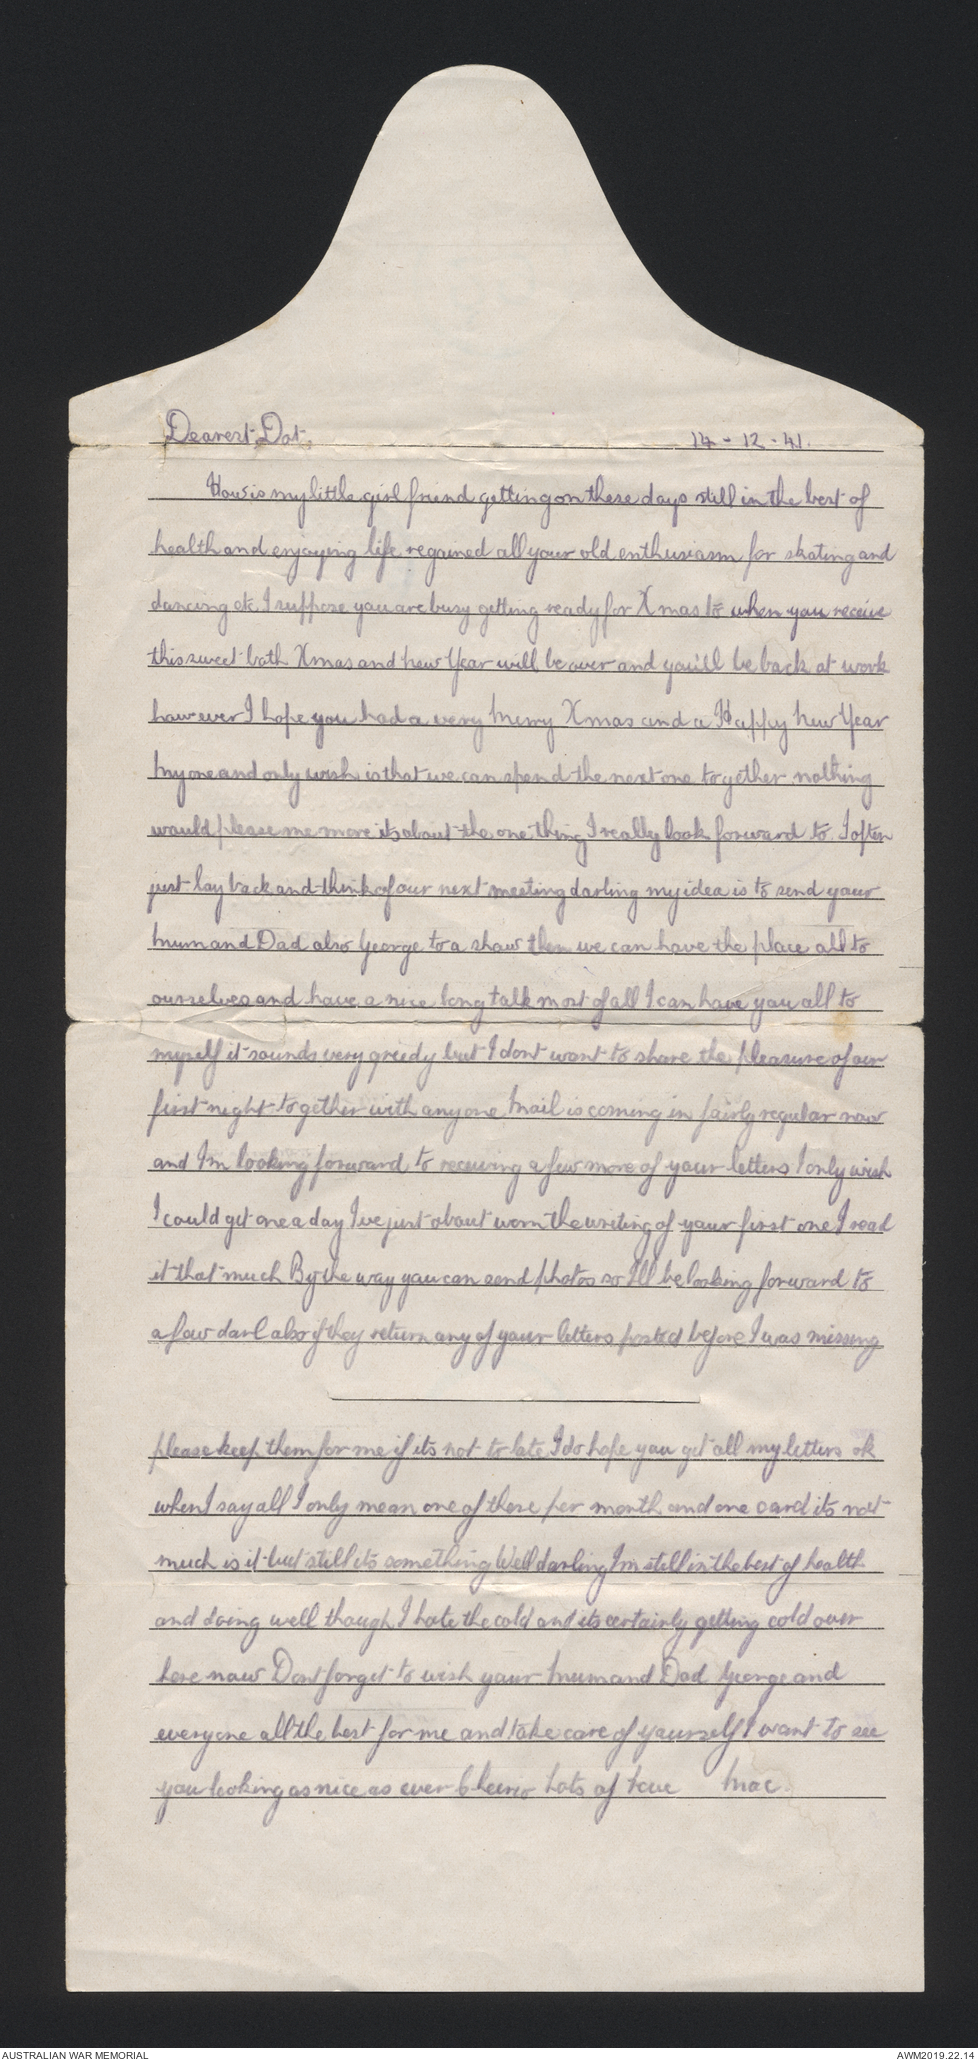 Dearest Dot, 14-12-41.
How is my little girl friend getting on these days still in the best of
health and enjoying life regained all your old enthusiasm for skating and
dancing etc I suppose you are busy getting ready for Xmas to when you receive
this sweet both Xmas and New Year will be over and you'll be back at work
however I hope you had a very Merry Xmas and a Happy New Year
My one and only wish is that we can spend the next one together nothing
would please me more its about the one thing I really look forward to I often
just lay back and think of our next meeting darling my idea is to send your
Mum and Dad also George to a show then we can have the place all to
ourselves and have a nice long talk most of all I can have you all to
myself it sounds very greedy but I dont want to share the pleasure of our
first night together with anyone Mail is coming in fairly regular now
and Im looking forward to receiving a few more of your letters I only wish
I could get one a day I've just about worn the writing of your first one I read
it that much By the way you can send photos so Ill be looking forward to
a few darl also if they return any of your letters posted before I was missing
please keep them for me if its not to late I do hope you get all my letters ok
when I say all I only mean one of these per month and one card its not
much is it but still its something Well darling Im still in the best of health
and doing well though I hate the cold and its certainly getting cold over
here now Dont forget to wish your Mum and Dad George and
everyone all the best for me and take care of yourself I want to see
you looking as nice as ever Cheerio Lots of love Mac.
AUSTRALIAN WAR MEMORIAL AWM2019.22.14